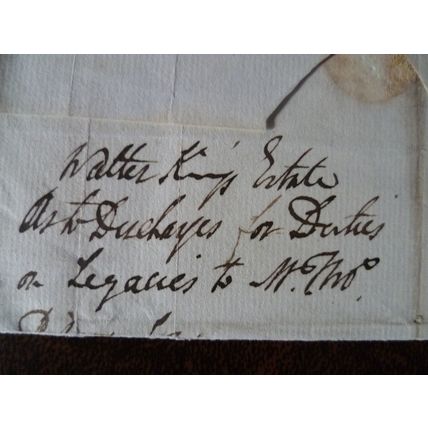 Walter King's Estate
As to Discharges for Duties
on Legacies to Mr. Thos.